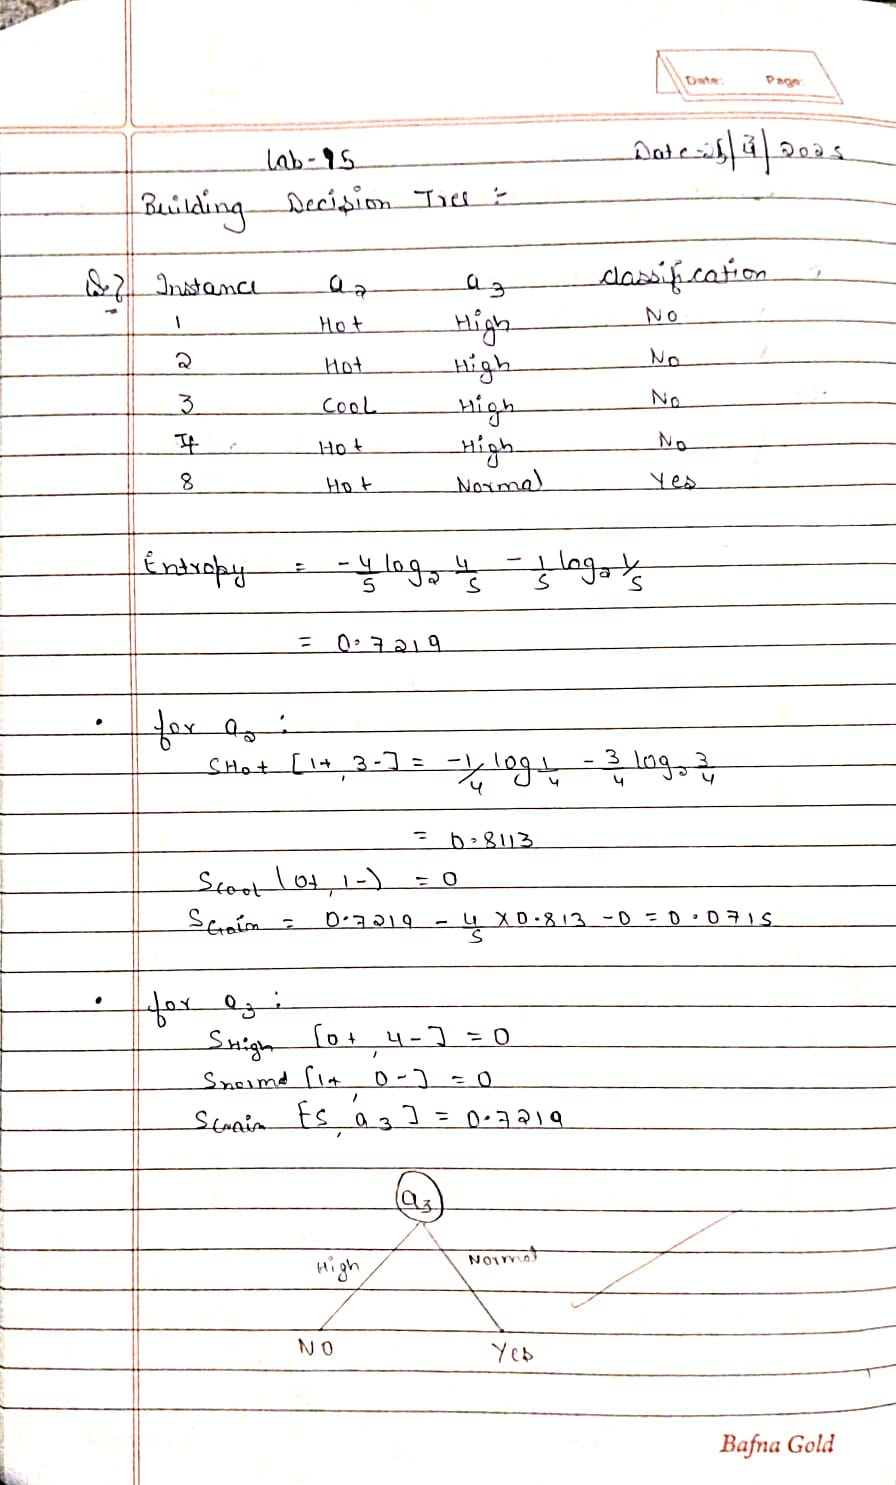 Date: Page:
Lab-95 Date - /2025
Building Decision Tree :-
Q.? Instance a₂ a₃ classification
1 Hot High No
2 Hot High No
3 Cool High No
7 Hot High No
8 Hot Normal Yes
Entropy = -4/5 log₂ 4/5 - 1/5 log₂ 1/5
= 0.7219
• for a₂ :
SHot [1+, 3-] = -1/4 log 1/4 - 3/4 log₂ 3/4
= 0.8113
Scool (0+, 1-) = 0
SGain = 0.7219 - 4/5 X 0.813 - 0 = 0.0715
• for a₃ :
SHigh [0+, 4-] = 0
Snormal [1+, 0-] = 0
SGain [S, a₃] = 0.7219
a₃
High Normal
NO Yes
Bafna Gold